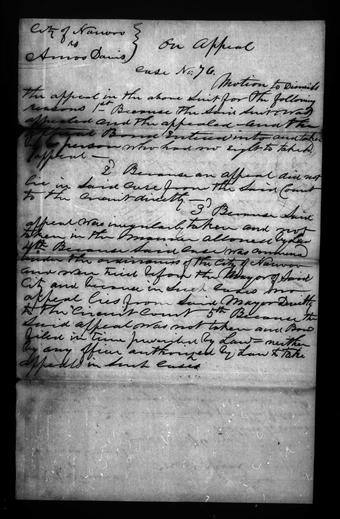 City of Nauvoo
vs
Amos Davis
On Appeal
Case No. 76.
Motion to Dismiss
the appeal in the above Suit for the following
reasons 1st Because the Said Suit was
appealed and the appealed and the
Appeal Bond entered into and taken
by a person who had no right to take
appeal —
2d Because an appeal did not
lie in Said case from the Said Court
to the Circuit directly —
3d Because Said
appeal was irregularly taken and not
taken in the manner allowed by Law
4th Because Said Case was
under the ordinances of the City of Nauvoo
and were tried before the Mayor of Said
City and because in Such Cases no
appeal lies from Said Mayor Directly
to the Circuit Court 5th Because the
Said appeal was not taken and Bond
filed in time prescribed by Law — neither
by any officer authorized by Law to take
appeals in Such Cases